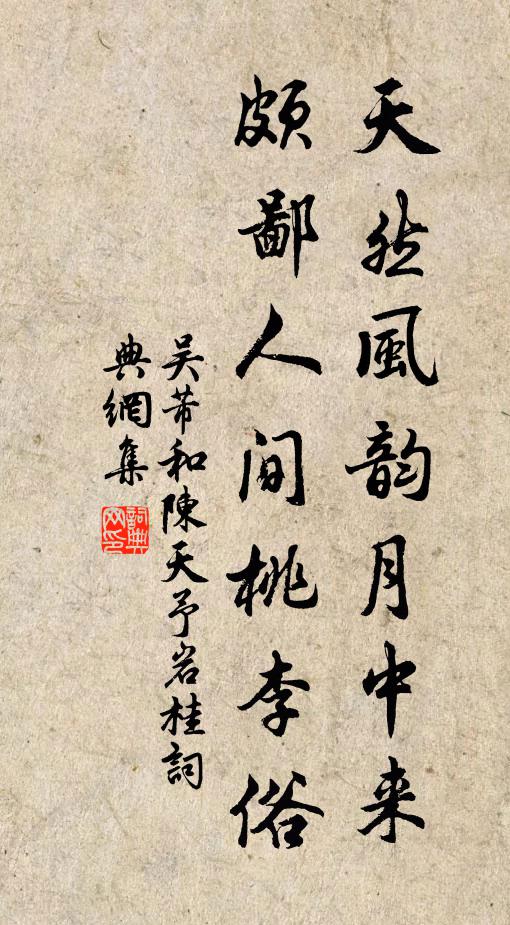 天然風韵月中来
頗鄙人间桃李俗
吴芾和陳天予岩桂詞
典網集
詞典
网印